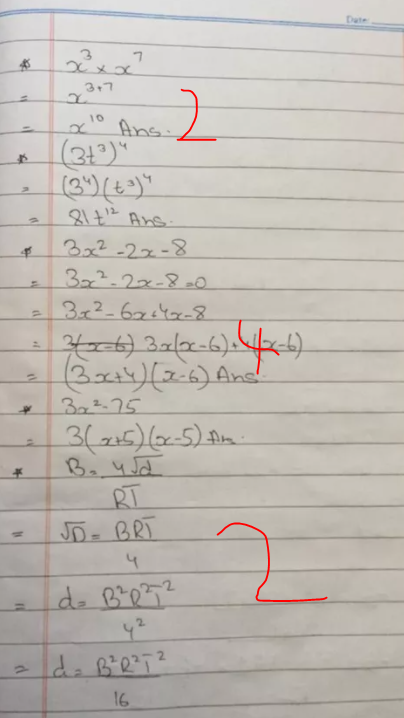 Date
* x³ × x⁷
= x³⁺⁷
= x¹⁰ Ans. 2
* (3t³)⁴
= (3⁴)(t³)⁴
= 81t¹² Ans.
* 3x² - 2x - 8
= 3x² - 2x - 8 = 0
= 3x² - 6x + 4x - 8
= 3(x-6) 3x(x-6) + 4(x-6)
= (3x+4)(x-6) Ans.
* 3x² - 75
= 3(x+5)(x-5) An.
* B = 4√d / RT
= √D = BRT / 4
2
= d = B²R²T² / 4²
= d = B²R²T² / 16